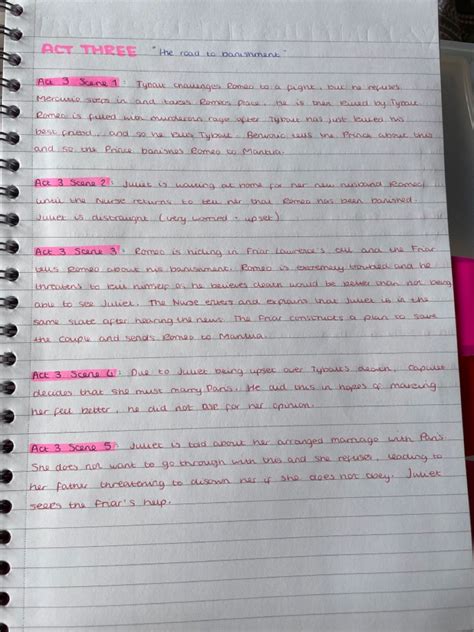 ACT THREE "the road to banishment"
Act 3 Scene 1: Tybalt challenges Romeo to a fight, but he refuses.
Mercutio steps in and takes Romeo's place, he is then killed by Tybalt.
Romeo is filled with murderous rage after Tybalt has just killed his
best friend... and so he kills Tybalt. Benvolio tells the Prince about this
and so the Prince banishes Romeo to Mantua.
Act 3 Scene 2: Juliet is waiting at home for her new husband (Romeo)
until the Nurse returns to tell her that Romeo has been banished.
Juliet is distraught (very worried + upset)
Act 3 Scene 3: Romeo is hiding in Friar Laurence's cell and the Friar
tells Romeo about his banishment. Romeo is extremely troubled and he
threatens to kill himself as he believes death would be better than not being
able to see Juliet. The Nurse enters and explains that Juliet is in the
same state after hearing the news. The Friar constructs a plan to save
the couple and sends Romeo to Mantua.
Act 3 Scene 4: Due to Juliet being upset over Tybalt's death, Capulet
decides that she must marry Paris. He did this in hopes of making
her feel better, he did not ask for her opinion.
Act 3 Scene 5: Juliet is told about her arranged marriage with Paris.
She does not want to go through with this and she refuses, leading to
her father threatening to disown her if she does not obey. Juliet
seeks the Friar's help.